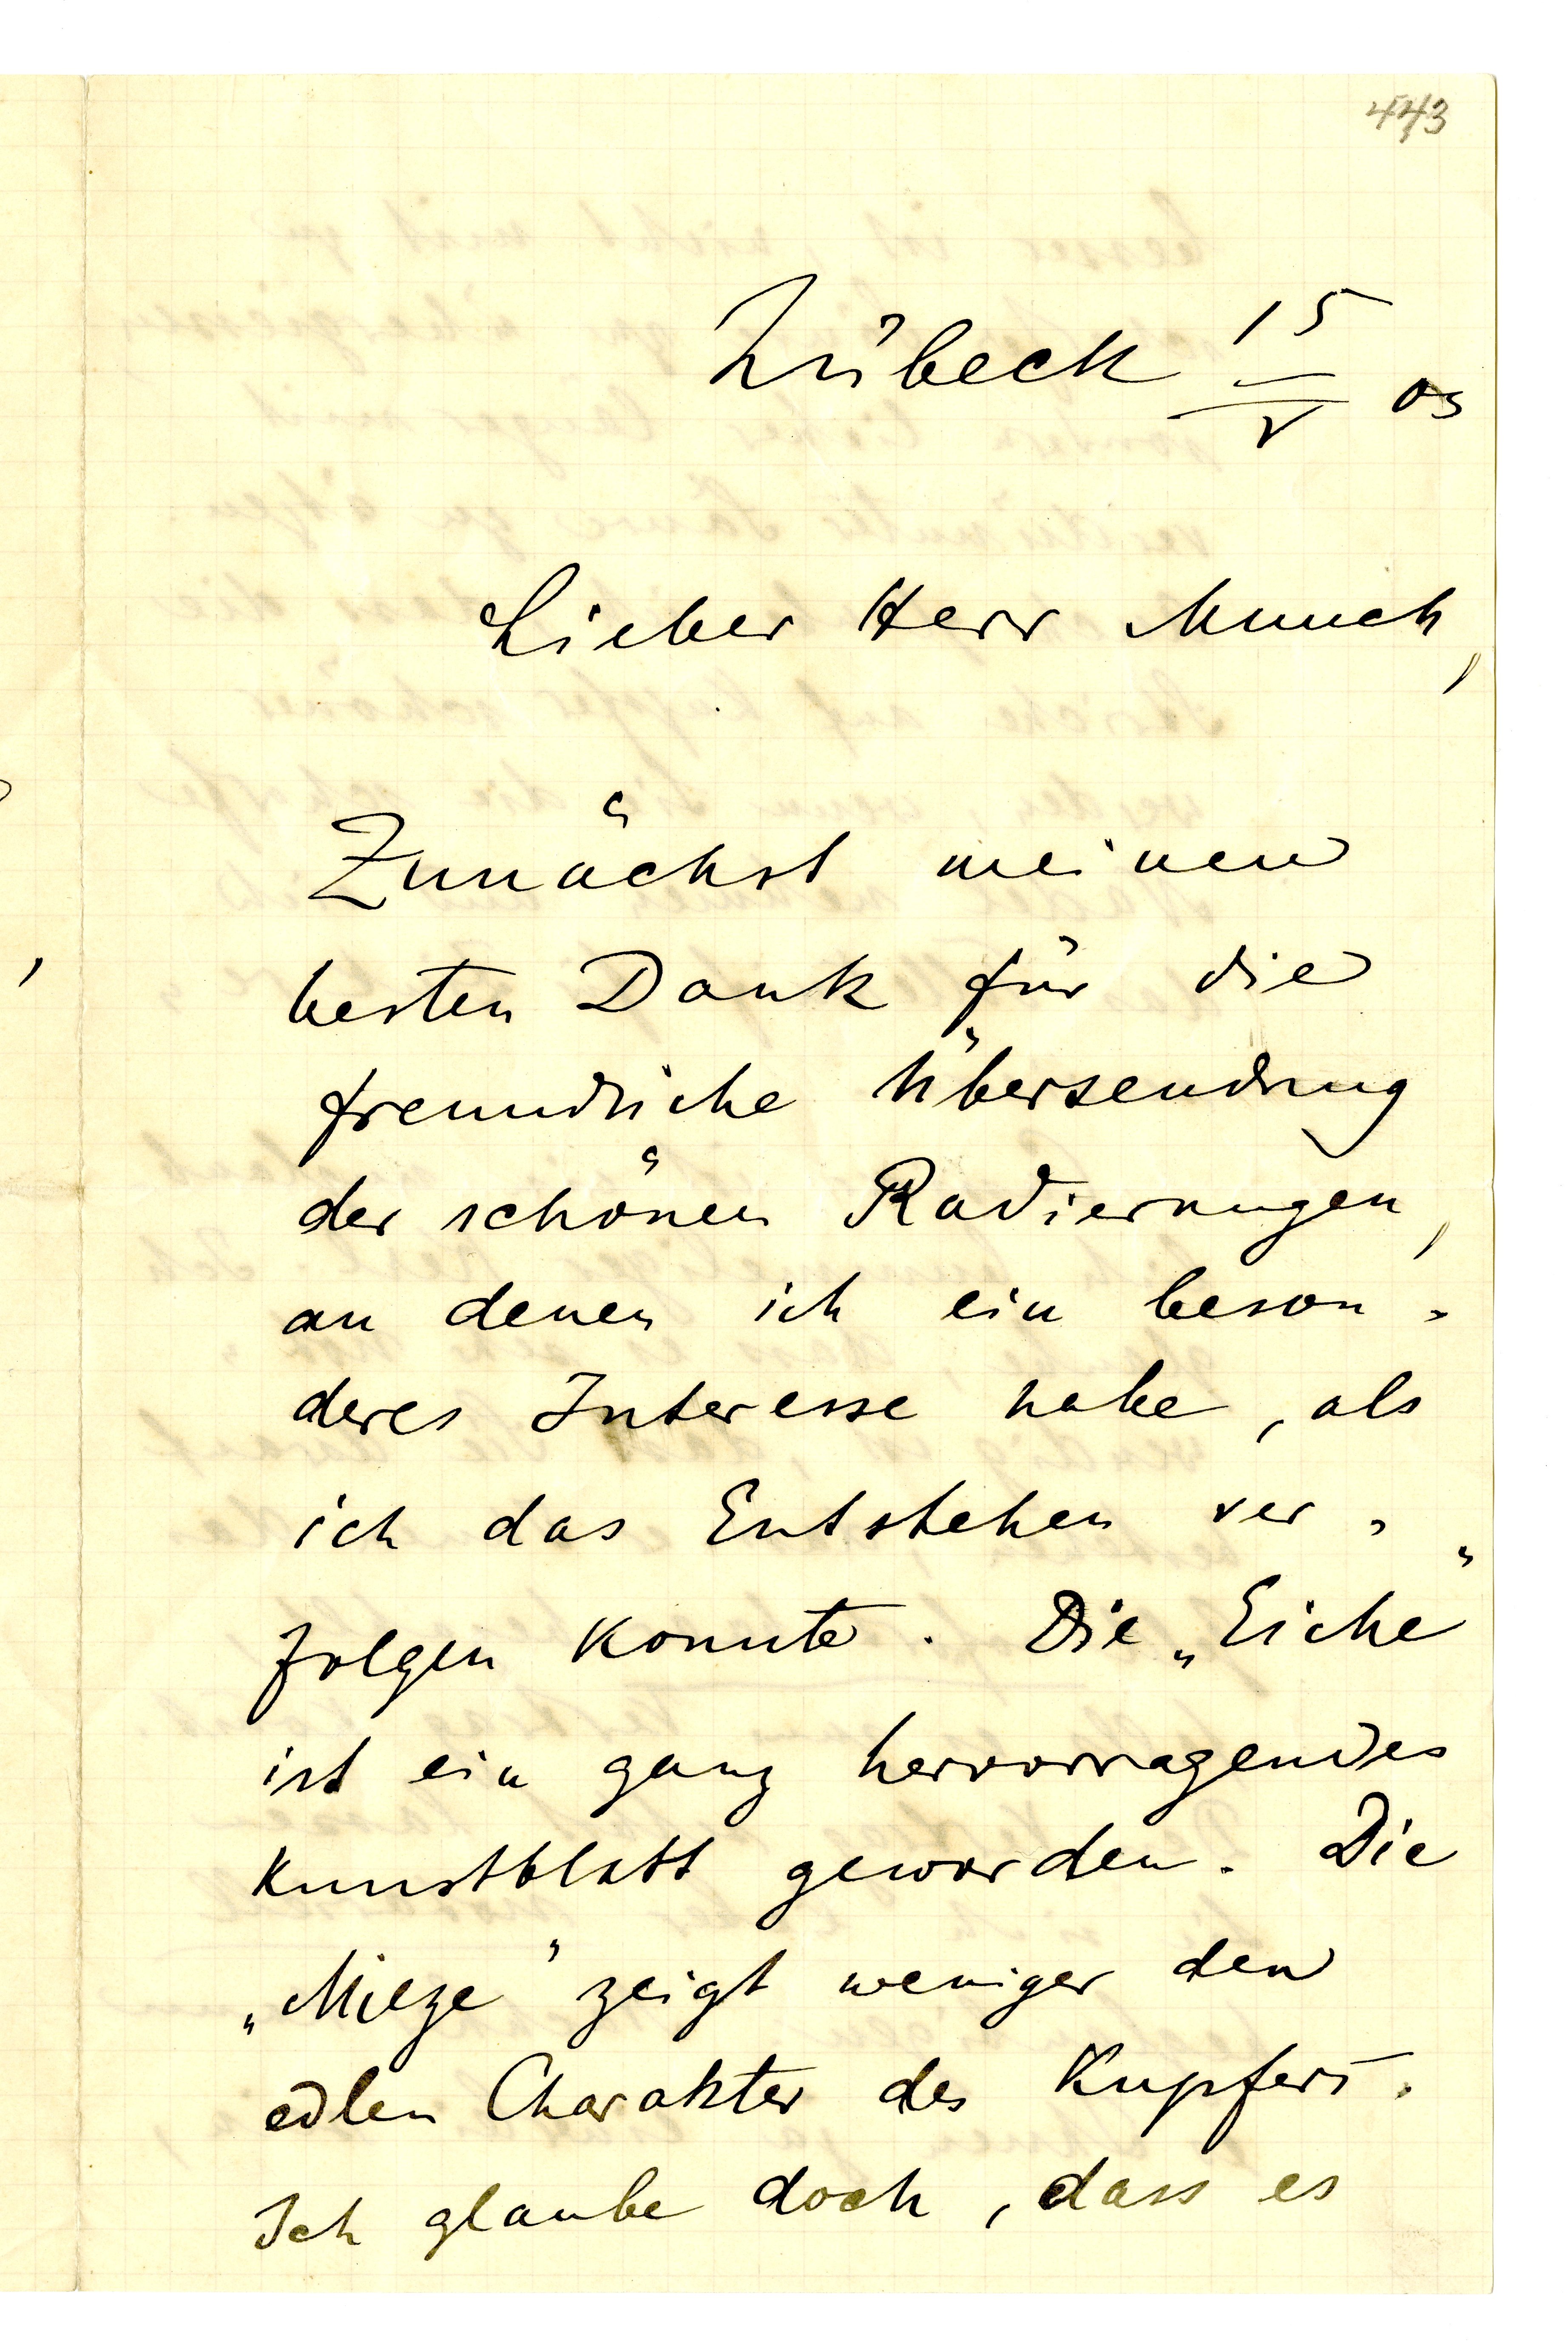 443
Lübeck 15/V 03
Lieber Herr Munch,
Zunächst meinen
besten Dank für die
freundliche Übersendung
der schönen Radierungen,
an denen ich ein beson-
deres Interesse habe, als
ich das Entstehen ver-
folgen konnte. Die „Eiche"
ist ein ganz hervorragendes
Kunstblatt geworden. Die
„Mieze" zeigt weniger den
edlen Charakter des Kupfers.
Ich glaube doch, dass es